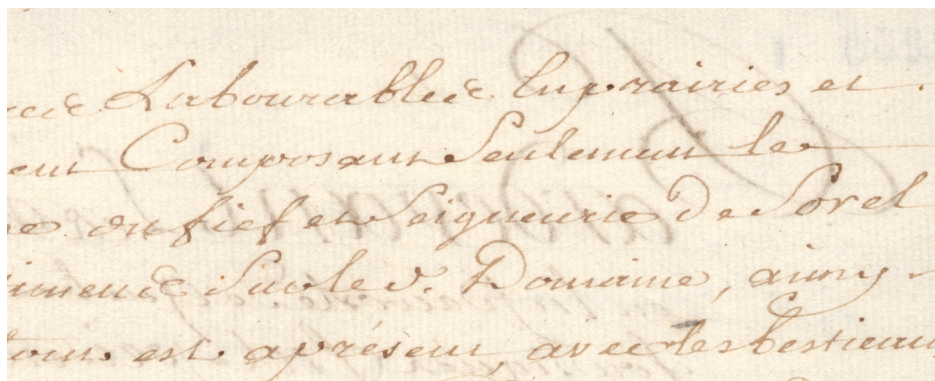 Labourables En prairies et
ent Composant Seulement le
du fief et Seigneurie De Sorel
Sur le d. Domaine, ainsy
tout est aprésent, avec les bestiaux